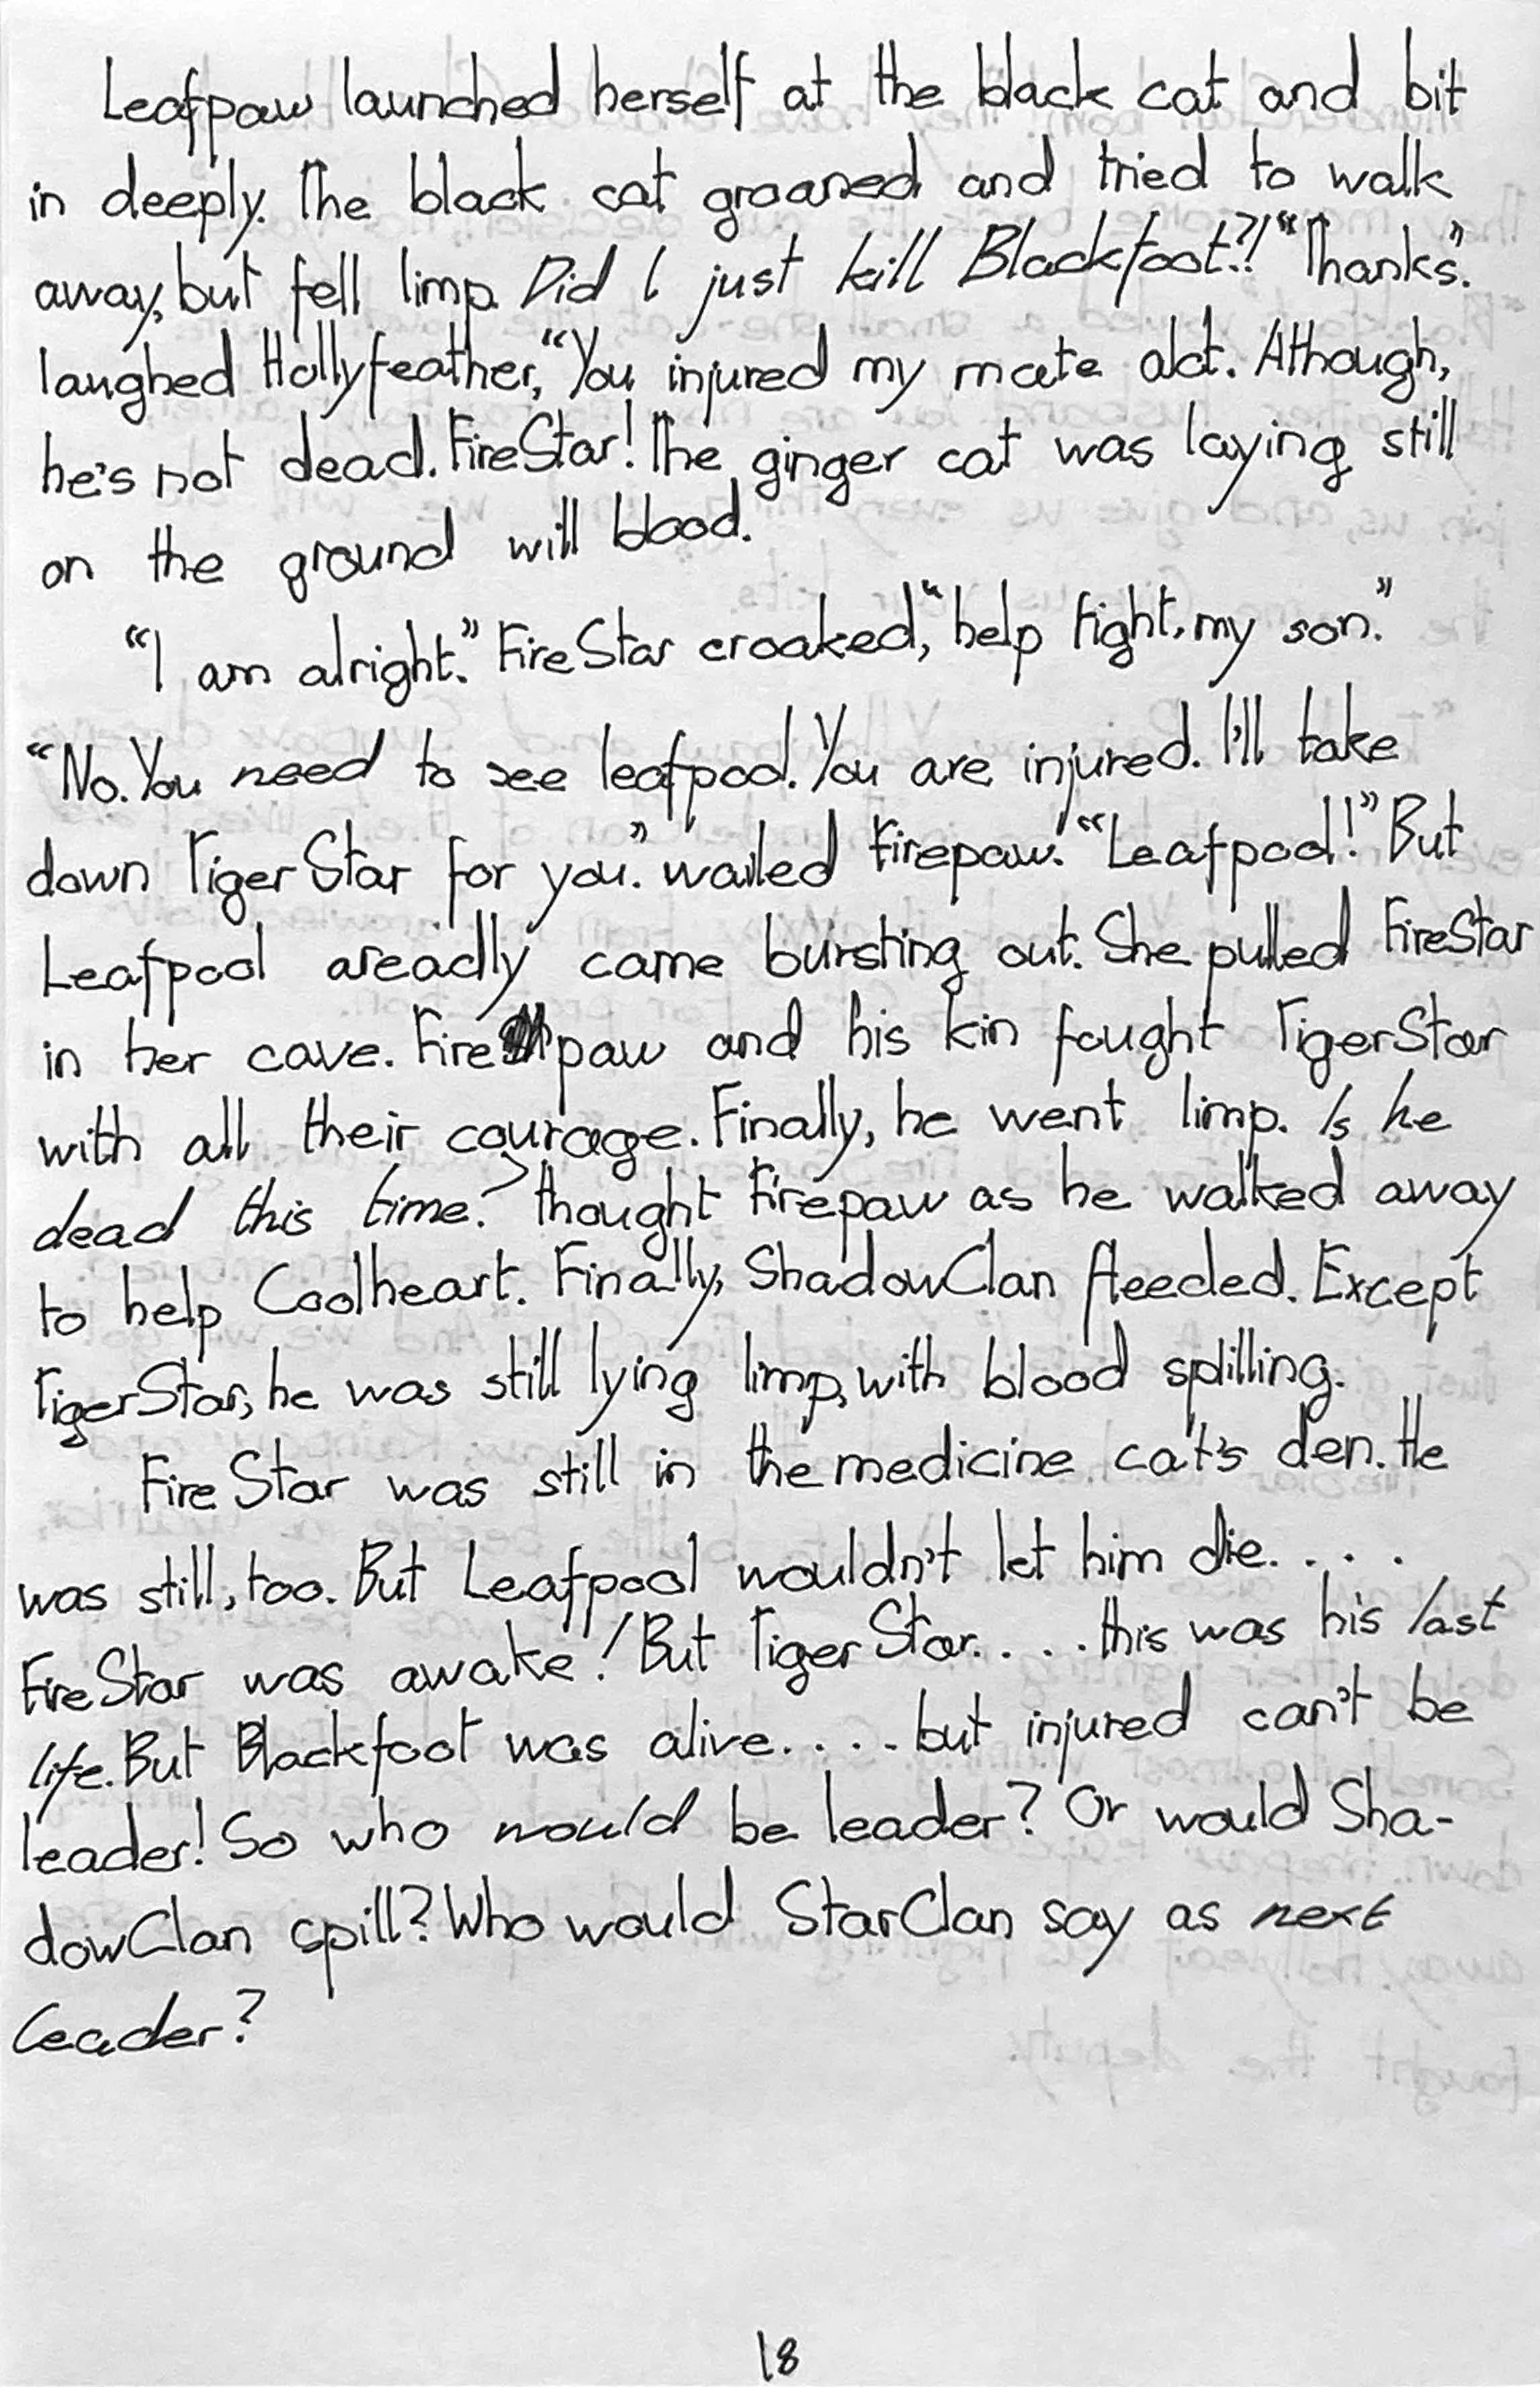 Leafpaw launched herself at the black cat and bit
in deeply. The black cat groaned and tried to walk
away, but fell limp. Did I just kill Blackfoot?! "Thanks".
laughed Hollyfeather, "You injured my mate alot. Athough,
he's not dead. FireStar! The ginger cat was laying still
on the ground will blood.
"I am alright." FireStar croaked, "help fight, my son."
"No. You need to see leafpool. You are injured. I'll take
down TigerStar for you." wailed Firepaw. "Leafpool!" But
Leafpool areadly came bursting out. She pulled FireStar
in her cave. Fire paw and his kin fought TigerStar
with all their courage. Finally, he went limp. Is he
dead this time? thought Firepaw as he walked away
to help Coolheart. Finally, ShadowClan fleeded. Except
TigerStar, he was still lying limp, with blood spilling.
FireStar was still in the medicine cat's den. He
was still, too. But Leafpool wouldn't let him die....
FireStar was awake! But TigerStar.... this was his last
life. But Blackfoot was alive.... but injured can't be
leader! So who would be leader? Or would Sha-
dowClan spill? Who would StarClan say as next
leader?
18